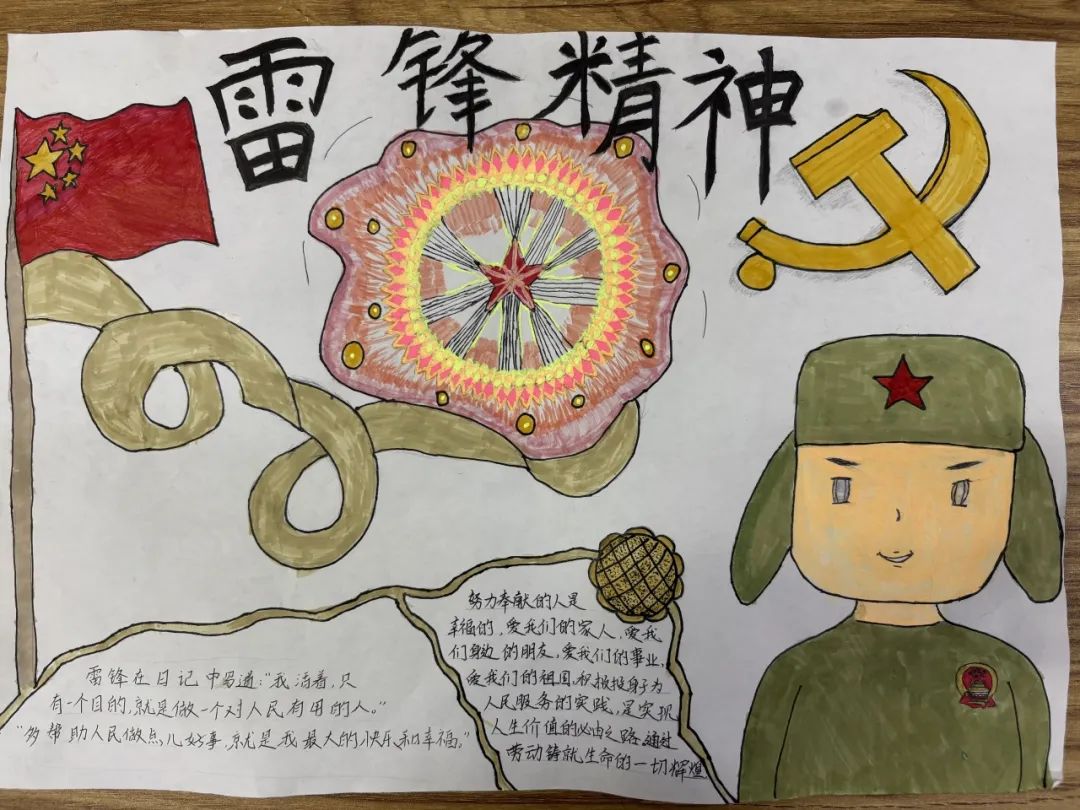 雷锋精神
雷锋在日记中写道:"我活着,只
有一个目的,就是做一个对人民有用的人。"
"多帮助人民做点儿好事,就是我最大的快乐和幸福。"
努力奉献的人是
幸福的,爱我们的家人,爱我
们身边的朋友,爱我们的事业,
爱我们的祖国,积极投身于为
人民服务的实践,是实现
人生价值的必由之路,通过
劳动铸就生命的一切辉煌